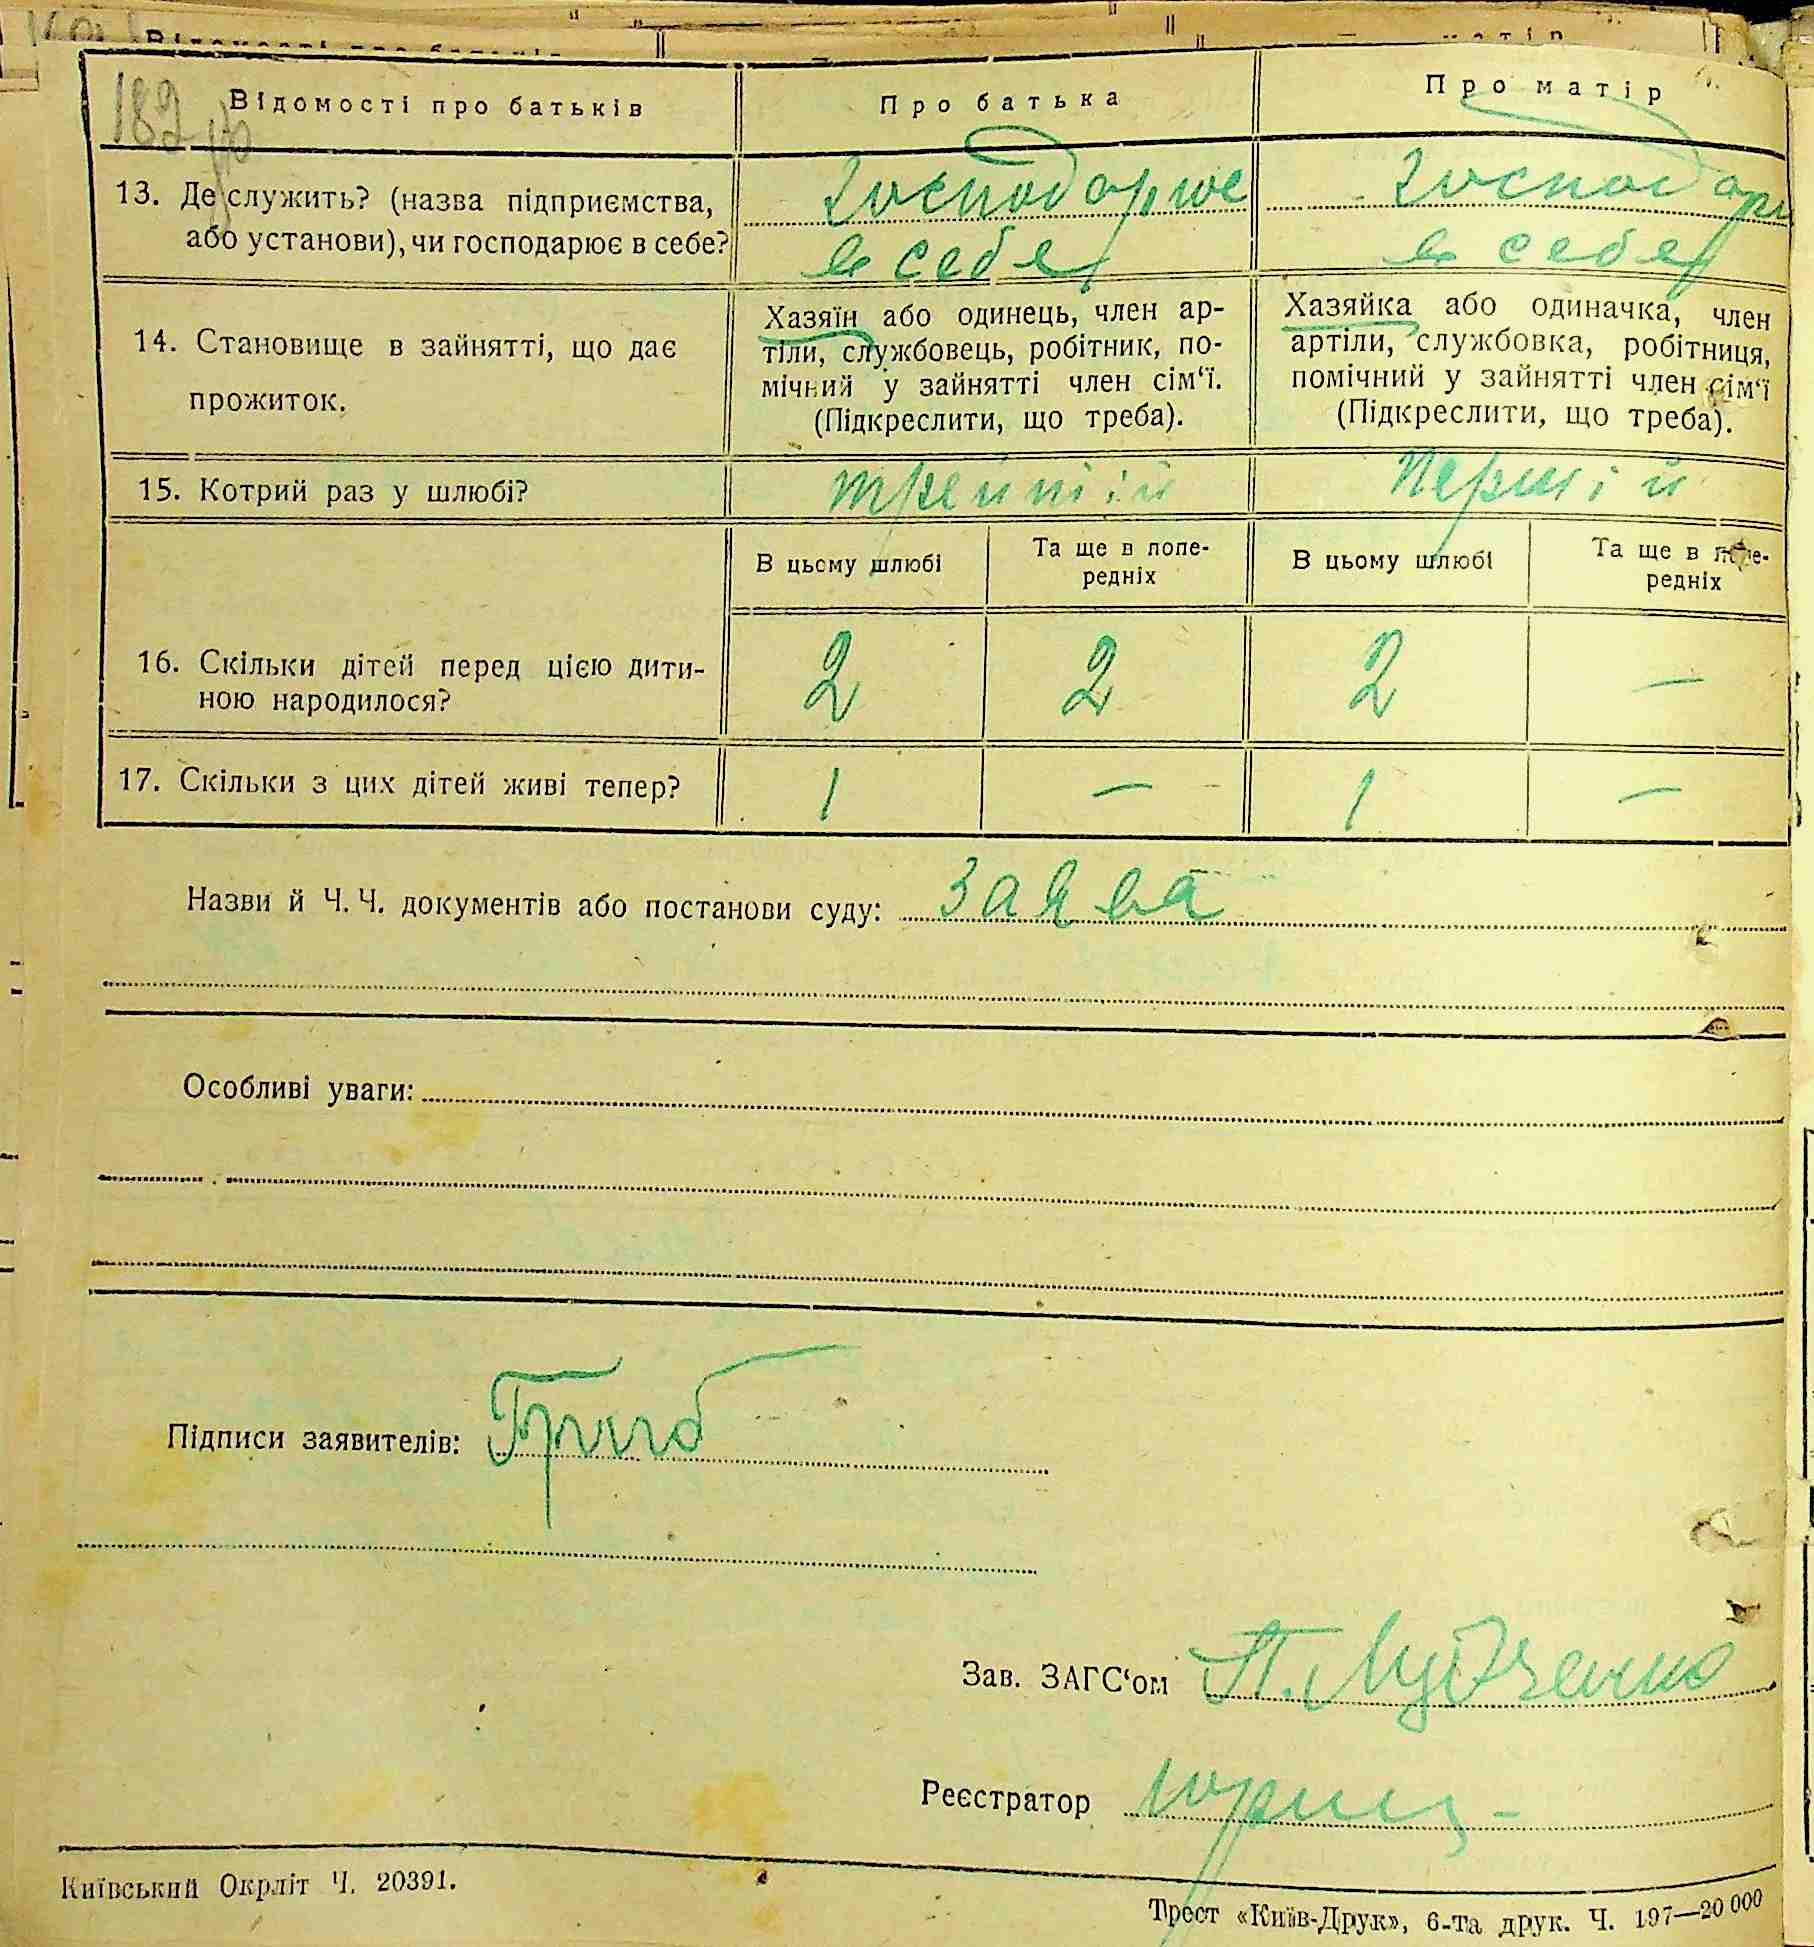 182
Відомості про батьків
Про батька
Про матір
13. Де служить? (назва підприємства, або установи), чи господарює в себе?
господарює
в себе
господарю
в себе
14. Становище в зайнятті, що дає
прожиток.
Хазяїн або одинець, член ар-
тіли, службовець, робітник, по-
мічний у зайнятті член сім‘ї.
(Підкреслити, що треба).
Хазяйка або одиначка, член
артіли, службовка, робітниця,
помічний у зайнятті член сім‘ї
(Підкреслити, що треба).
15. Котрий раз у шлюбі?
третій
перший
В цьому шлюбі
Та ще в попе-
редніх
В цьому шлюбі
Та ще в попе-
редніх
16. Скільки дітей перед цією дити-
ною народилося?
2
2
2
—
17. Скільки з цих дітей живі тепер?
1
—
1
—
Назви й Ч. Ч. документів або постанови суду: заява
Особливі уваги:
Підписи заявителів: Гриб
Зав. ЗАГС‘ом П.
Реєстратор
Київський Окрліт Ч. 20391.
Трест «Київ-Друк», 6-та друк. Ч. 197—20 000